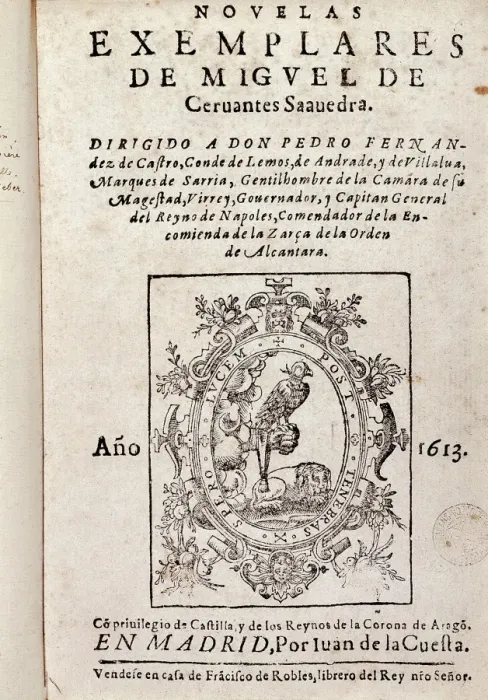 NOVELAS
EXEMPLARES
DE MIGVEL DE
Ceruantes Saauedra.
DIRIGIDO A DON PEDRO FERNAN-
dez de Caſtro, Conde de Lemos, de Andrade, y de Villalua,
Marques de Sarria, Gentilhombre de la Camara de ſu
Mageſtad, Virrey, Gouernador, y Capitan General
del Reyno de Napoles, Comendador de la En-
comienda de la Zarça de la Orden
de Alcantara.
SPERO LVCEM POST TENEBRAS
Año 1613.
Cõ priuilegio de Caſtilla, y de los Reynos de la Corona de Aragõ.
EN MADRID, Por Iuan de la Cueſta.
Vendeſe en caſa de Frãciſco de Robles, librero del Rey nr̃o Señor.